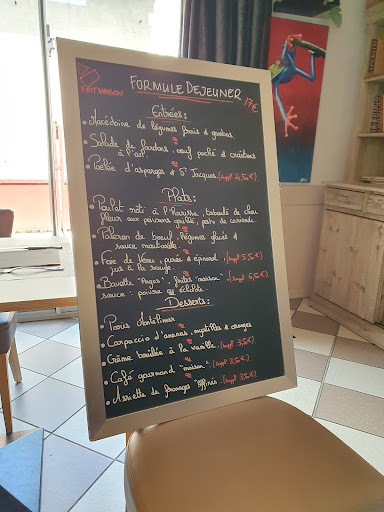 FAIT MAISON
FORMULE DEJEUNER
17€
Entrées :
• Macédoine de légumes frais & gambas.
• Salade de gardons, oeuf poché & croûtons
à l'ail.
• Poêlée d'asperges & St Jacques. (suppl 4,50€)
Plats :
• Poulet rôti à l'Harissa, taboulé de chou
fleur aux poivrons grillés, pesto de coriandre.
• Paleron de boeuf, légumes glacés &
sauce moutarde.
• Foie de Veau, purée d'épinard, (suppl 5,50€)
jus à la sauge.
• Bavette "Angus", frites "maison". (suppl 6,50€)
sauce : poivre ou échalote.
Desserts :
• Paris
• Carpaccio d'ananas, myrtilles & oranges
• Crème brulée à la vanille. (suppl 3,50€)
• Café gourmand "maison". (suppl 3,50€)
• Assiette de fromages "affinés". (suppl 3,50€)